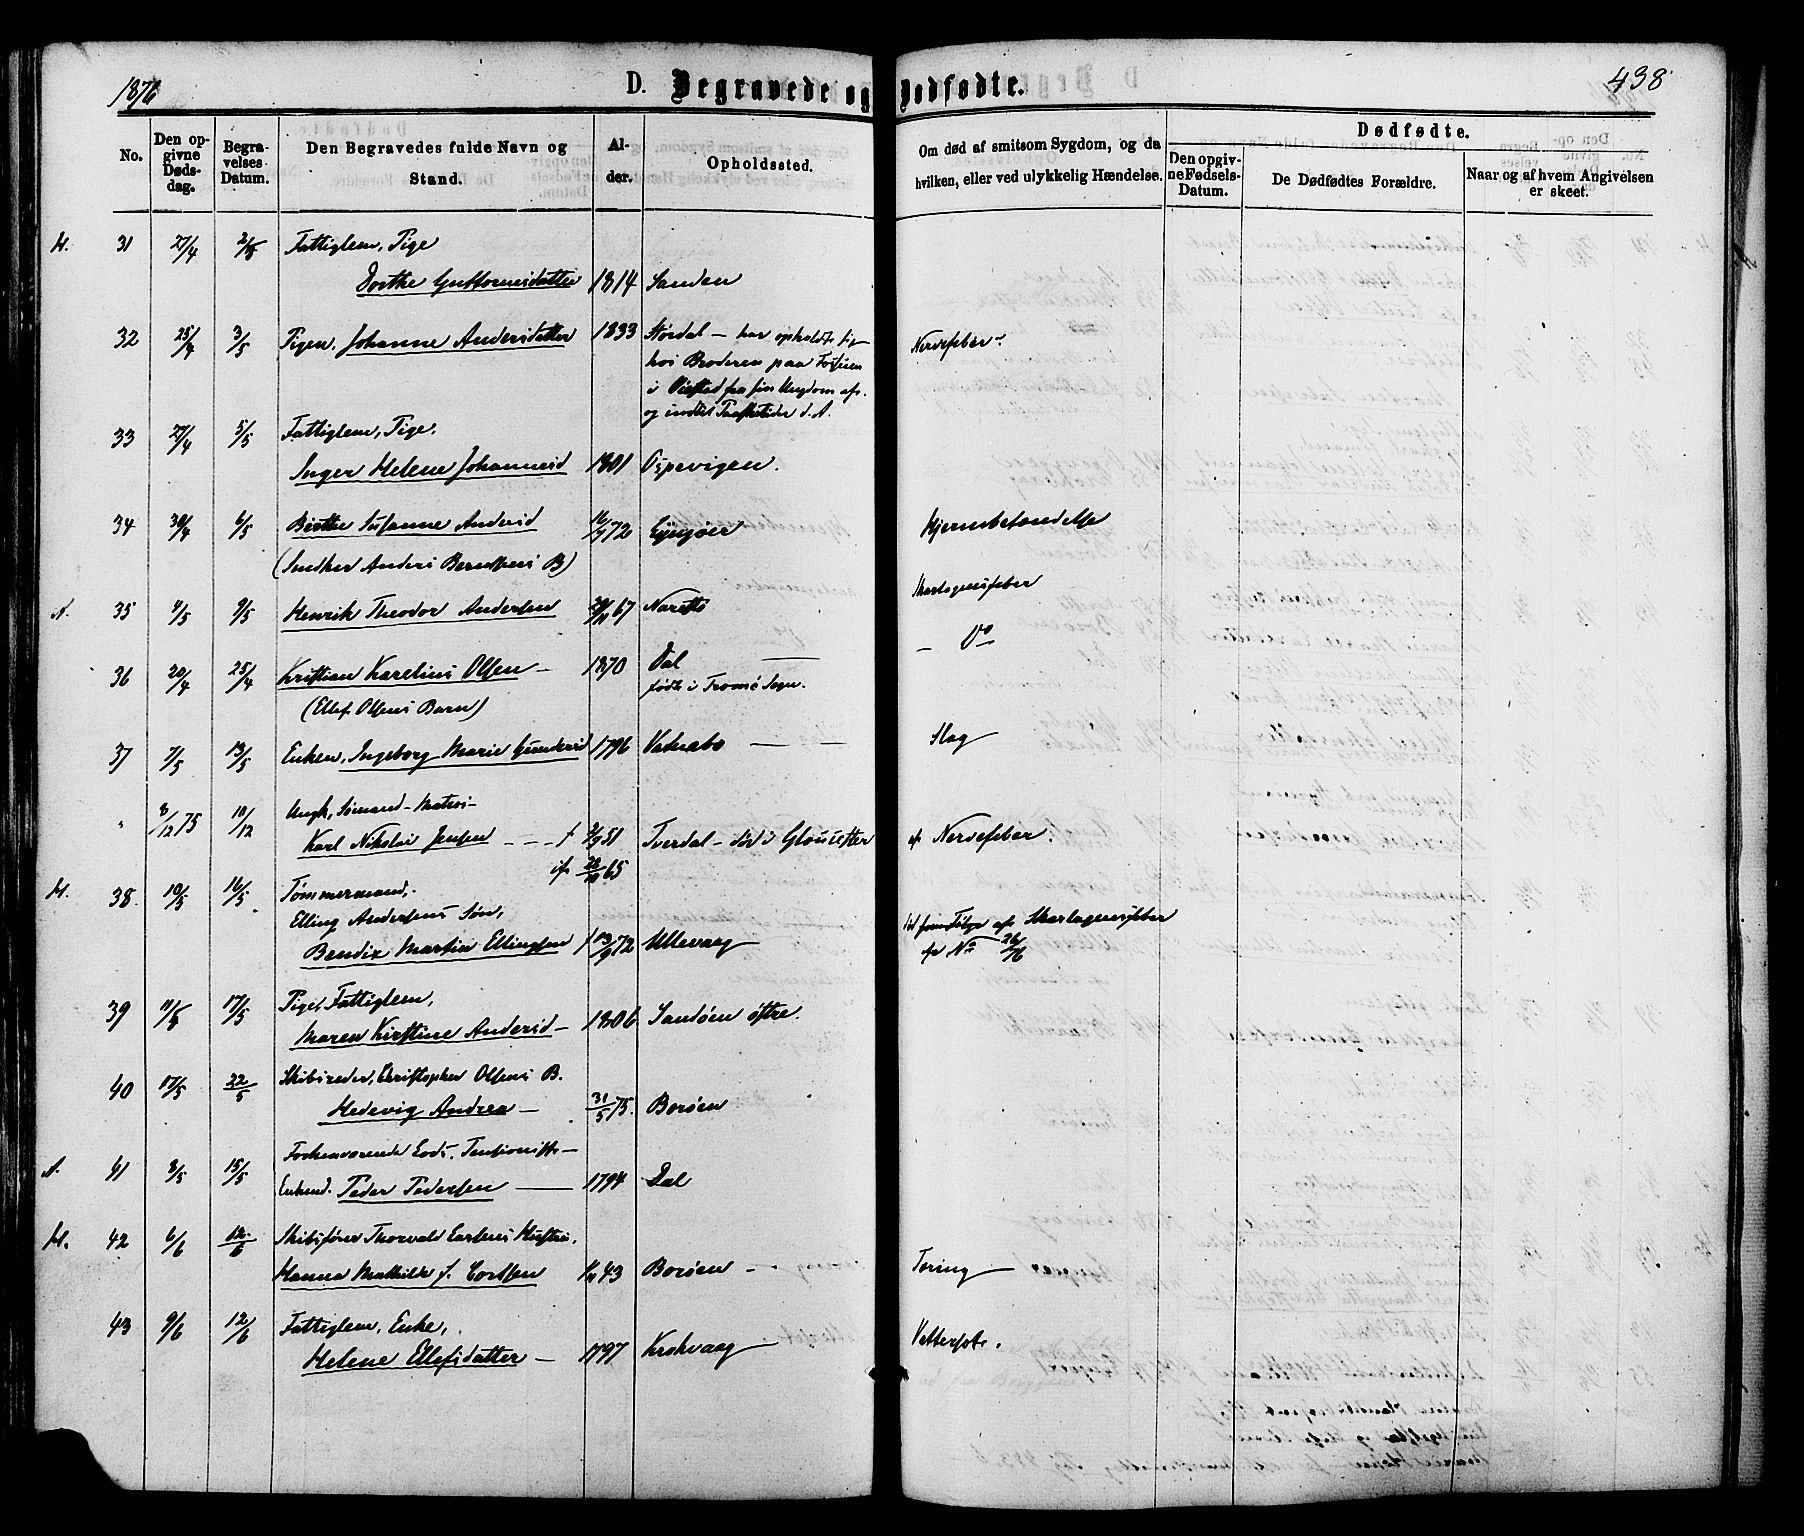 1876
D. Begravede og Dødfødte.
438
No.
Den opgivne Dødsdag.
Begravelses Datum.
Den Begravedes fulde Navn og Stand.
Alder.
Opholdssted.
Om død af smitsom Sygdom, og da hvilken, eller ved ulykkelig Hændelse.
Dødfødte.
Den opgivne Fødsels-Datum.
De Dødfødtes Forældre.
Naar og af hvem Angivelsen er skeet.
H. 31 27/4 2/5 Fattiglem, Pige
Dorthe Guttormsdatter 1814 Sanden
32 25/4 3/5 Pigen, Johanne Andersdatter 1833 Størdal – har opholdt sig
hos Broderen paa
i fra sin Ungdom af.
og indtil d. A.
Nervefeber
33 27/4 5/5 Fattiglem, Pige.
Inger Helene Johannesd 1801 Espevigen.
34 30/4 6/5 Birthe Susanne Andersd 16/9 72 Gjenjøer Hjernebetændelse
(Snedker Anders Berntsens B)
Skarlagensfeber
A. 35 4/5 9/5 Henrik Theodor Andersen 67 Narestø – Do
36 20/4 25/4 Kristian Karelius Olsen – 1870 Dal
(Ellef Olsens Barn) født i Tromø Sogn.
37 7/5 13/5 Enken, Ingeborg Marie Gundersd 1796 Vatnabo — Slag
" 8/12 75 10/12 Ungk, Sømand – Matros –
Karl Nikolai Jensen – – – f 51 Tverdal – død i Gloucester af Nervefeber.
65
H. 38 10/5 16/5 Tømmermand,
Elling Andersens Søn,
Bendix Martin Ellingsen f 13/9 72 Ullevaag
af Skarlagensfeber
No
39 11/5 17/5 Pige, Fattiglem,
Maren Kirstine Andersd – 1806 Sandøen østre.
40 17/5 22/5 Skibsreder, Christopher Olsens B.
Hedevig Andrea – 31/5 75. Borøen
A. 41 8/5 15/5 Forhenværende Lods, Pensionist –
Enkemd. Peder Pedersen — 1794 Dal
H. 42 6/6 12/6 Skibsfører Thorvald Corsens Hustru,
Hanna Mathilde f. Corssen 43 Borøen – Tæring
43 9/6 12/6 Fattiglem, Enke,
Helene Ellefsdatter – 1797 Krokvaag Vattersot.